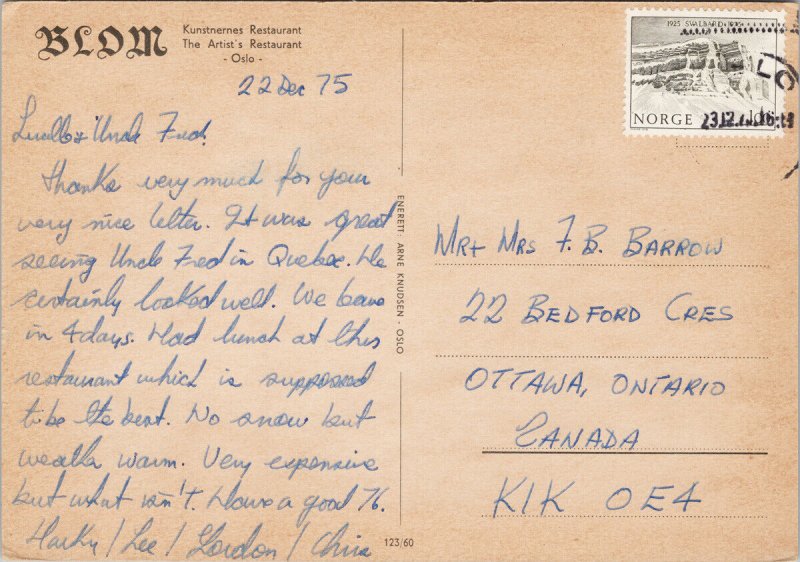 BLOM
Kunstnernes Restaurant
The Artist's Restaurant
- Oslo -
22 Dec 75
Uncle Fred,
Thanks very much for your
very nice letter. It was great
seeing Uncle Fred in Quebec. He
certainly looked well. We leave
in 4 days. Had lunch at this
restaurant which is supposed
to be the best. No snow but
weather warm. Very expensive
but what isn't. Have a good 76.
/ Lee / Gordon / Chris
ENERETT: ARNE KNUDSEN - OSLO
123/60
1925 SVALBARD 1975
NORGE
Mr + Mrs F. B. BARROW
22 BEDFORD CRES
OTTAWA, ONTARIO
CANADA
K1K 0E4